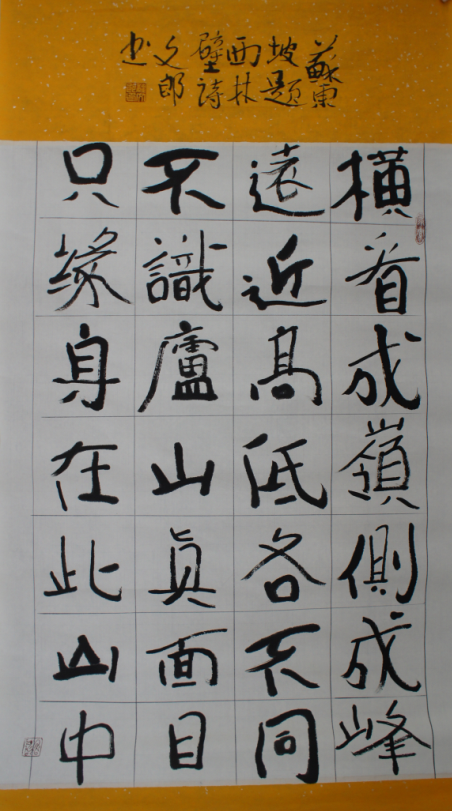 蘇東
坡題
西林
壁詩
文郎
书
橫看成嶺側成峰
遠近髙低各不同
不識廬山真面目
只緣身在此山中